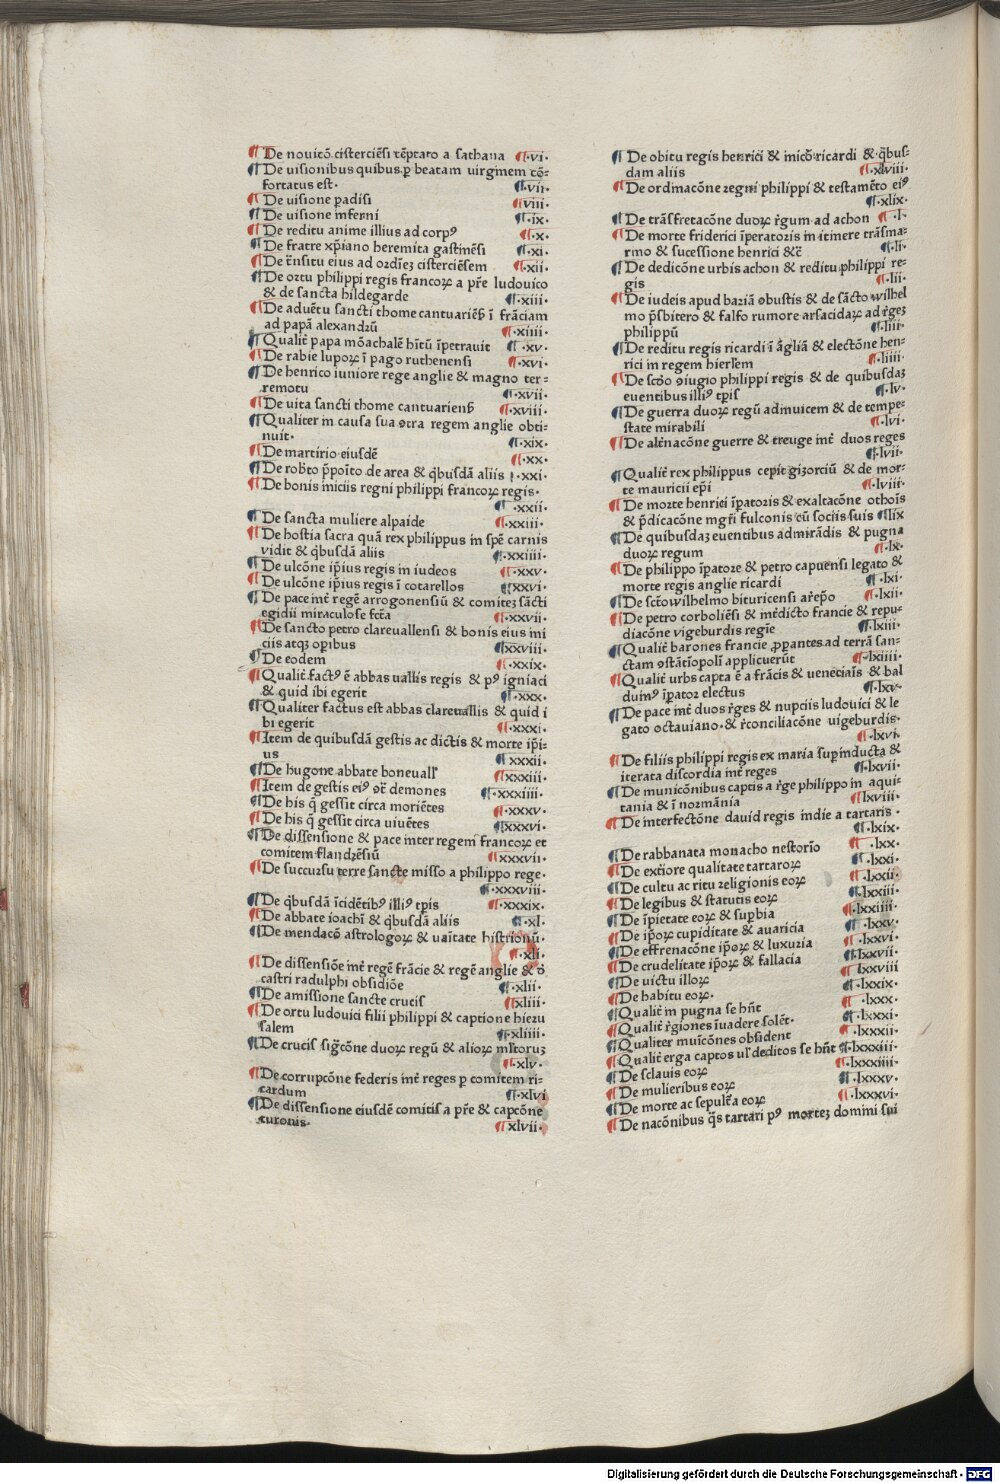 ¶De nouitō cisterciēsi tēptato a sathana ¶·vi·
¶De uisionibus quibus ꝑ beatam uirginem cō=
fortatus est· ¶·vii·
¶De uisione padisi ¶viii·
¶De uisione inferni ¶·ix·
¶De reditu anime illius ad corpꝰ ¶·x·
¶De fratre xp̄iano heremita gastinēsi ¶·xi·
¶De tr̄nsitu eius ad ordīez cisterciēsem ¶·xii·
¶De ortu philippi regis francoꝝ a pr̄e ludouico
& de sancta hildegarde ¶·xiii·
¶De aduētu sancti thome cantuariēs ī frāciam
ad papā alexandrū ¶·xiiii·
¶Qualit̄ papa mōachalē hītū īpetrauit ¶·xv·
¶De rabie lupoꝝ ī pago ruthenensi ¶·xvi·
¶De henrico iuniore rege anglie & magno ter=
remotu ¶·xvii·
¶De uita sancti thome cantuariens ¶·xviii·
¶Qualiter in causa sua ꝯtra regem anglie obti=
nuit· ¶·xix·
¶De martirio eiusdē ¶·xx·
¶De rob̄to p̄poīto de area & q̄busdā aliis ¶·xxi·
¶De bonis iniciis regni philippi francoꝝ regis·
¶·xxii·
¶De sancta muliere alpaide ¶·xxiii·
¶De hostia sacra quā rex philippus in spē carnis
vidit & q̄busdā aliis ¶·xxiiii·
¶De ulcōne ip̄ius regis in iudeos ¶·xxv·
¶De ulcōne ip̄ius regis ī cotarellos ¶xxvi·
¶De pace int̄ regē arrogonensiū & comitez sācti
egidii miraculose fcta ¶·xxvii·
¶De sancto petro clareuallensi & bonis eius ini
ciis atqꝫ oꝑibus ¶xxviii·
¶De eodem ¶·xxix·
¶Qualit̄ factꝰ ē abbas uallis regis & pꝰ igniaci
& quid ibi egerit ¶·xxx·
¶Qualiter factus est abbas clareuallis & quid i
bi egerit ¶·xxxi·
¶Item de quibusdā gestis ac dictis & morte ip̄i=
us ¶xxxii·
¶De hugone abbate boneuall' ¶xxxiii·
¶Item de gestis eiꝰ ꝯt̄ demones ¶·xxxiiii·
¶De his q̄ gessit circa moriētes ¶·xxxv·
¶De his q̄ gessit circa uiuētes ¶xxxvi·
¶De dissensione & pace inter regem francoꝝ et
comitem flandrēsiū ¶xxxvii·
¶De succursu terre sancte misso a philippo rege·
¶·xxxviii·
¶De q̄busdā īcidētibꝰ illiꝰ tp̄is ¶·xxxix·
¶De abbate ioachī & q̄busdā aliis ¶·xl·
¶De mendacō astrologoꝝ & uāitate histrionū·
¶·xli·
¶De dissensiōe int̄ regē frācie & regē anglie & ō
castri radulphi obsidiōe ¶·xlii·
¶De amissione sancte crucis ¶xliii·
¶De ortu ludouici filii philippi & captione hieru
salem ¶·xliiii·
¶De crucis sigcōne duoꝝ regū & alioꝝ mltoruꝫ
¶·xlv·
¶De corrupcōne federis int̄ reges p comitem ri=
cardum ¶·xlvi
¶De dissensione eiusdē comitis a pr̄e & capcōne
turonis· ¶xlvii·
¶De obitu regis henrici & inicō ricardi & q̄bus=
dam aliis ¶·xlviii·
¶De ordinacōne regni philippi & testamēto eiꝰ
¶·xlix·
¶De trāsfretacōne duoꝝ r̄gum ad achon ¶·l·
¶De morte friderici īperatoris in itinere trāsma=
rino & sucessione henrici &c̄ ¶·li·
¶De dedicōne urbis achon & reditu philippi re=
gis ¶·lii·
¶De iudeis apud baziā ꝯbustis & de sācto wilhel
mo p̄sbitero & falso rumore arsacidaꝝ ad r̄gez
philippū ¶·liii·
¶De reditu regis ricardi ī āgliā & electōne hen=
rici in regem hierl̄em ¶·liiii·
¶De scd̄o ꝯiugio philippi regis & de quibusdaꝫ
euentibus illiꝰ tp̄is ¶·lv·
¶De guerra duoꝝ regū adinuicem & de tempe=
state mirabili ¶·lvi·
¶De alt̄nacōne guerre & treuge int̄ duos reges
¶·lvii·
¶Qualit̄ rex philippus cepit gizorciū & de mor=
te mauricii ep̄i ¶·lviii·
¶De morte henrici īpatoris & exaltacōne othōis
& p̄dicacōne mgr̄i fulconis cū sociis suis ¶lix
¶De quibusdaꝫ euentibus admirādis & pugna
duoꝝ regum ¶·lx·
¶De philippo īpatore & petro capuensi legato &
morte regis anglie ricardi ¶·lxi·
¶De scto wilhelmo bituricensi ar̄epo ¶·lxii·
¶De petro corboliēsi & int̄dicto francie & repu=
diacōne vigeburdis regie ¶·lxiii·
¶Qualit̄ barones francie ꝓꝑantes ad terrā san=
ctam ꝯstātīopolī applicuerūt ¶·lxiiii·
¶Qualit̄ urbs capta ē a frācis & ueneciāis & bal
duinꝰ īpator electus ¶·lxv·
¶De pace int̄ duos r̄ges & nupciis ludouici & le
gato octauiano & r̄conciliacōne uigeburdis·
¶·lxvi·
¶De filiis philippi regis ex maria suꝑinducta &
iterata discordia int̄ reges ¶·lxvii·
¶De municōnibus captis a r̄ge philippo in aqui=
tania & ī normānia ¶lxviii·
¶De interfectōne dauid regis indie a tartaris·
¶·lxix·
¶De rabbanata monacho nestorīo ¶·lxx·
¶De extiore qualitate tartaroꝝ ¶·lxxi·
¶De cultu ac ritu religionis eoꝝ ¶·lxxii·
¶De legibus & statutis eoꝝ ¶·lxxiii·
¶De īpietate eoꝝ & supbia ¶·lxxiiii·
¶De ip̄oꝝ cupiditate & auaricia ¶·lxxv·
¶De effrenacōne ip̄oꝝ & luxuria ¶·lxxvi·
¶De crudelitate ip̄oꝝ & fallacia ¶·lxxvii·
¶De uictu illoꝝ ¶·lxxviii
¶De habitu eoꝝ· ¶·lxxix·
¶Qualit̄ in pugna se hn̄t ¶·lxxx·
¶Qualit̄ r̄giones īuadere solēt· ¶·lxxxi·
¶Qualiter muīcōnes obsident ¶·lxxxii·
¶Qualit̄ erga captos ul' deditos se hn̄t ¶·lxxxiii·
¶De sclauis eoꝝ ¶·lxxxiiii·
¶De mulieribus eoꝝ ¶·lxxxv·
¶De morte ac sepult̄a eoꝝ ¶·lxxxvi·
¶De nacōnibus q̄s tartari pꝰ mortez domini sui
Digitalisierung gefördert durch die Deutsche Forschungsgemeinschaft - DFG